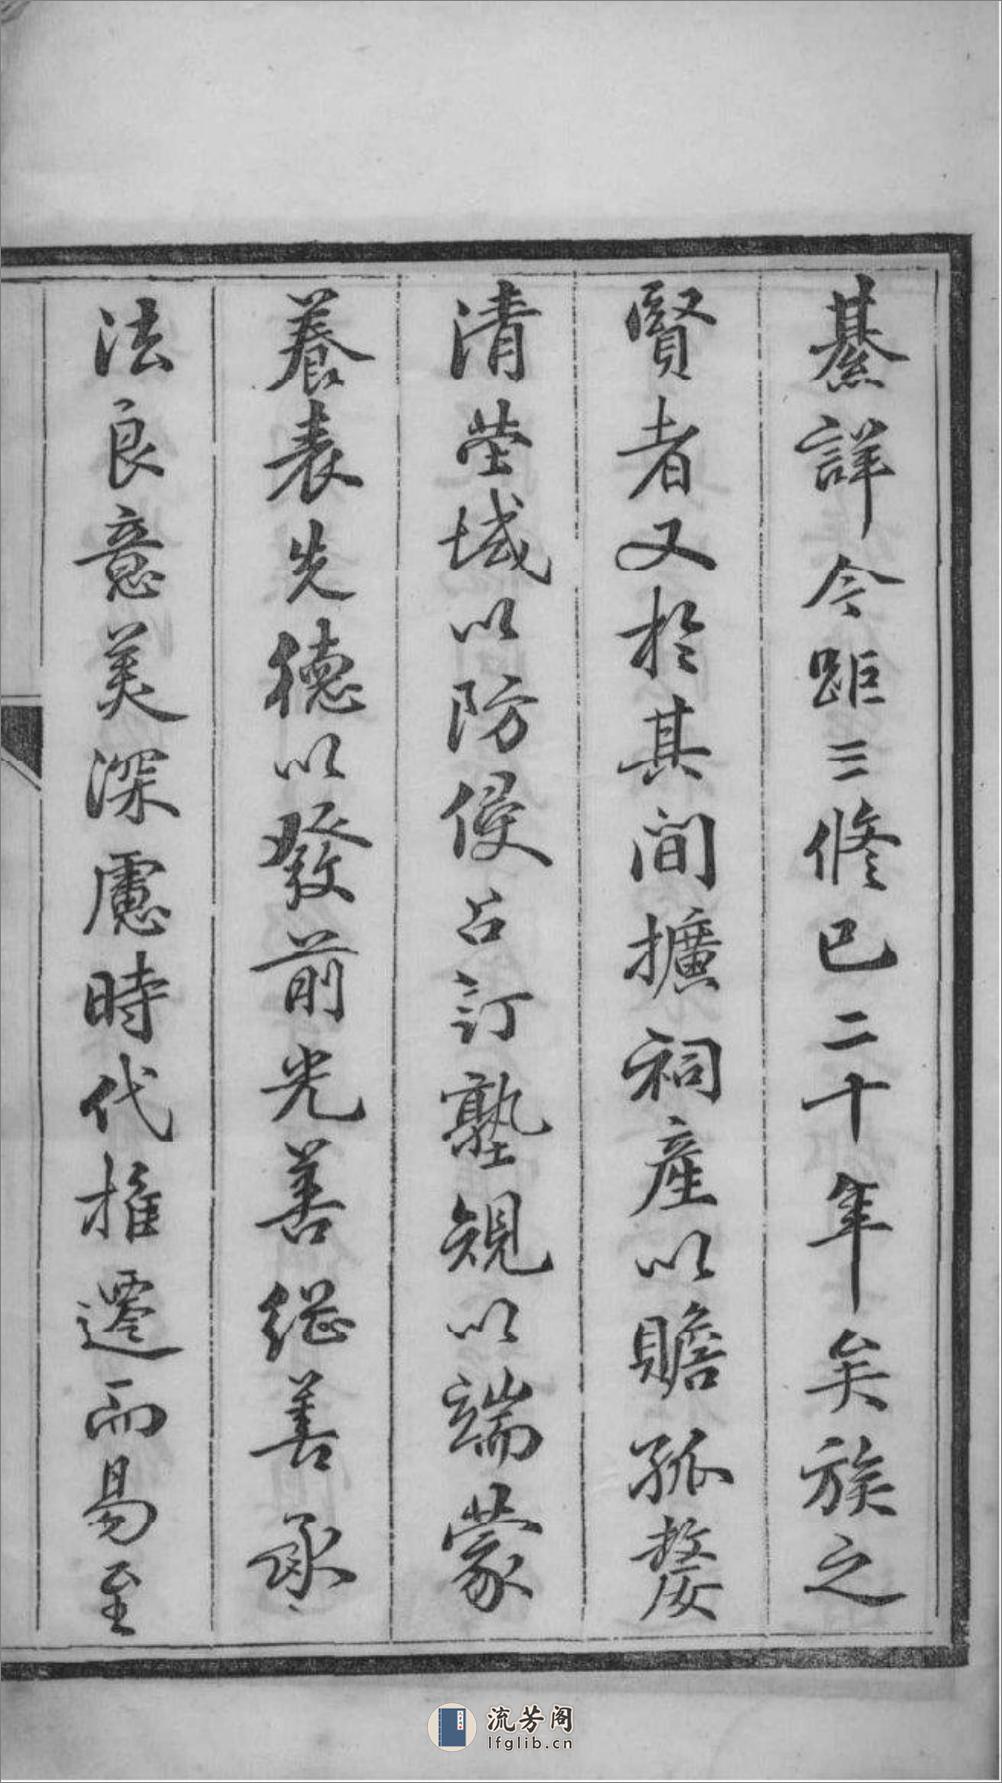 綦詳今距三修已二十年矣族之
賢者又於其間擴祠產以贍孤嫠
清塋域以防侵占訂塾規以端蒙
養表先德以發前光善繼善承
法良意美深慮時代推遷而易至
流芳阁
lfglib.cn